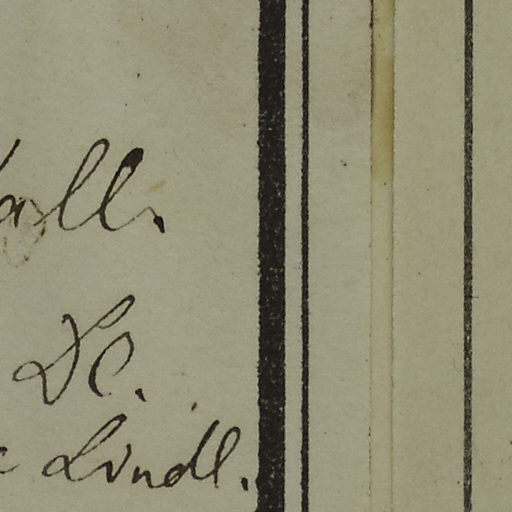 all.
DC.
Lindl.